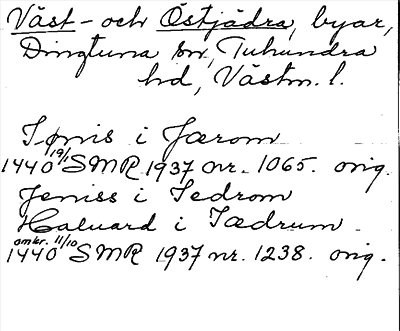 Väst- och Östjädra, byar,
Dingtuna sn, Tuhundra
hd, Västm. l.
i Jærom
1440 19/1 SMR 1937 nr. 1065. orig.
Jeniss i Iedrom
Haluard i Iædrum
omkr. 11/10
1440 SMR 1937 nr. 1238. orig.